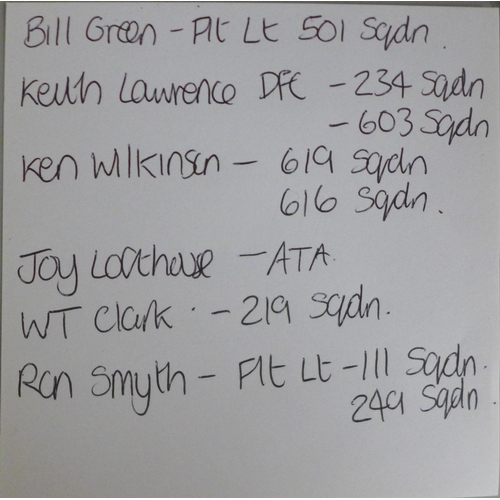 Bill Green - Flt Lt 501 Sqdn.
Keith Lawrence DFC - 234 Sqdn
- 603 Sqdn
Ken Wilkinson - 619 Sqdn
616 Sqdn.
Joy Lofthouse - ATA.
WT Clark - 219 Sqdn.
Ron Smyth - Flt Lt - 111 Sqdn.
249 Sqdn.